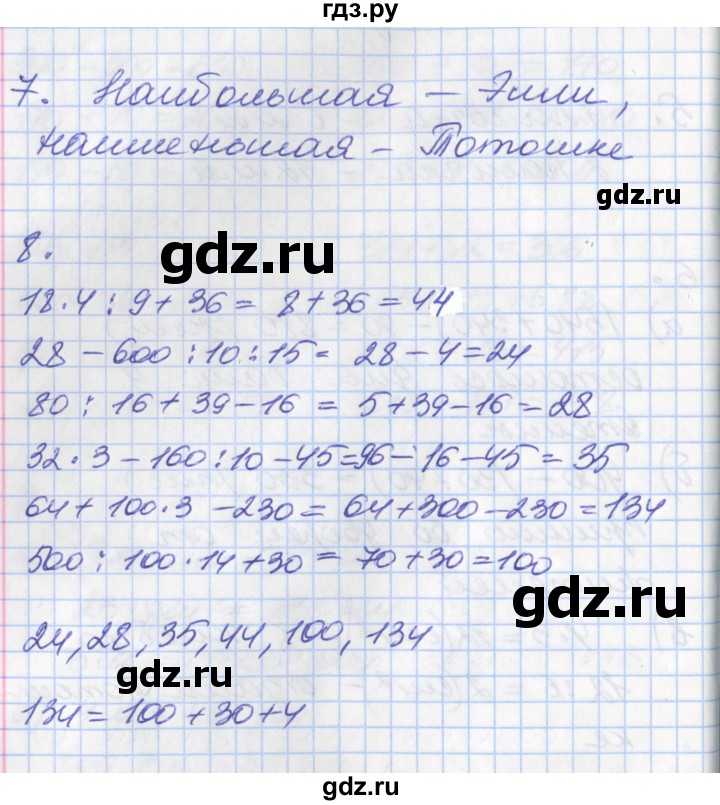 гдз.ру
7. Наибольшая – Элли,
наименьшая – Тотошке
gdz.ru
8.
gdz.ru
18·4:9+36= 8+36=44
28-600:10:15= 28-4=24
80:16+39-16= 5+39-16=28
32·3-160:10-45=96-16-45=35
64+100·3-230=64+300-230=134
500:100·14+30=70+30=100
gdz.ru
24,28,35,44,100,134
gdz.ru
134=100+30+4
gdz.ru